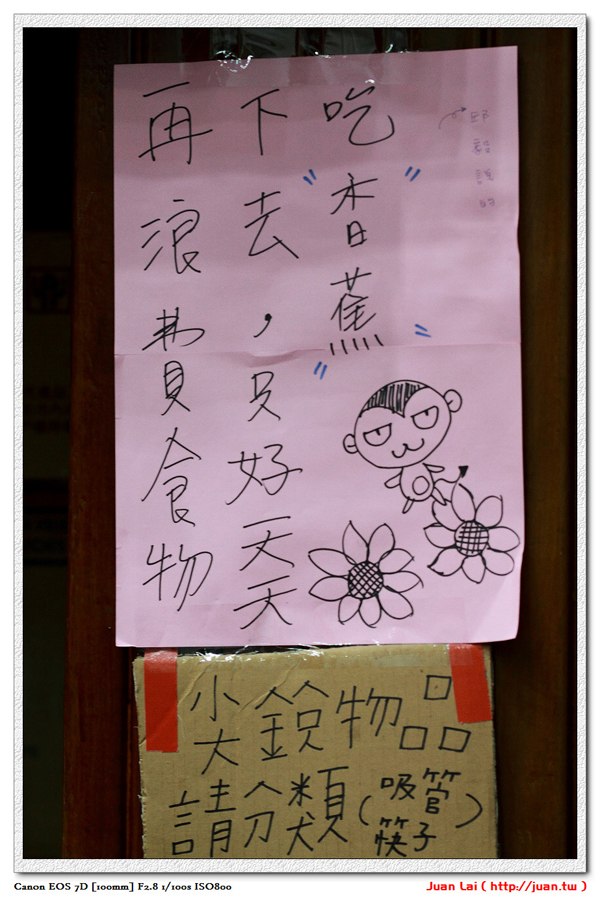 再浪費食物
下去,只好天天
吃"香蕉"
邱毅說的
尖銳物品
請分類(吸管
筷子)
Canon EOS 7D [100mm] F2.8 1/100s ISO800
Juan Lai ( http://juan.tw )